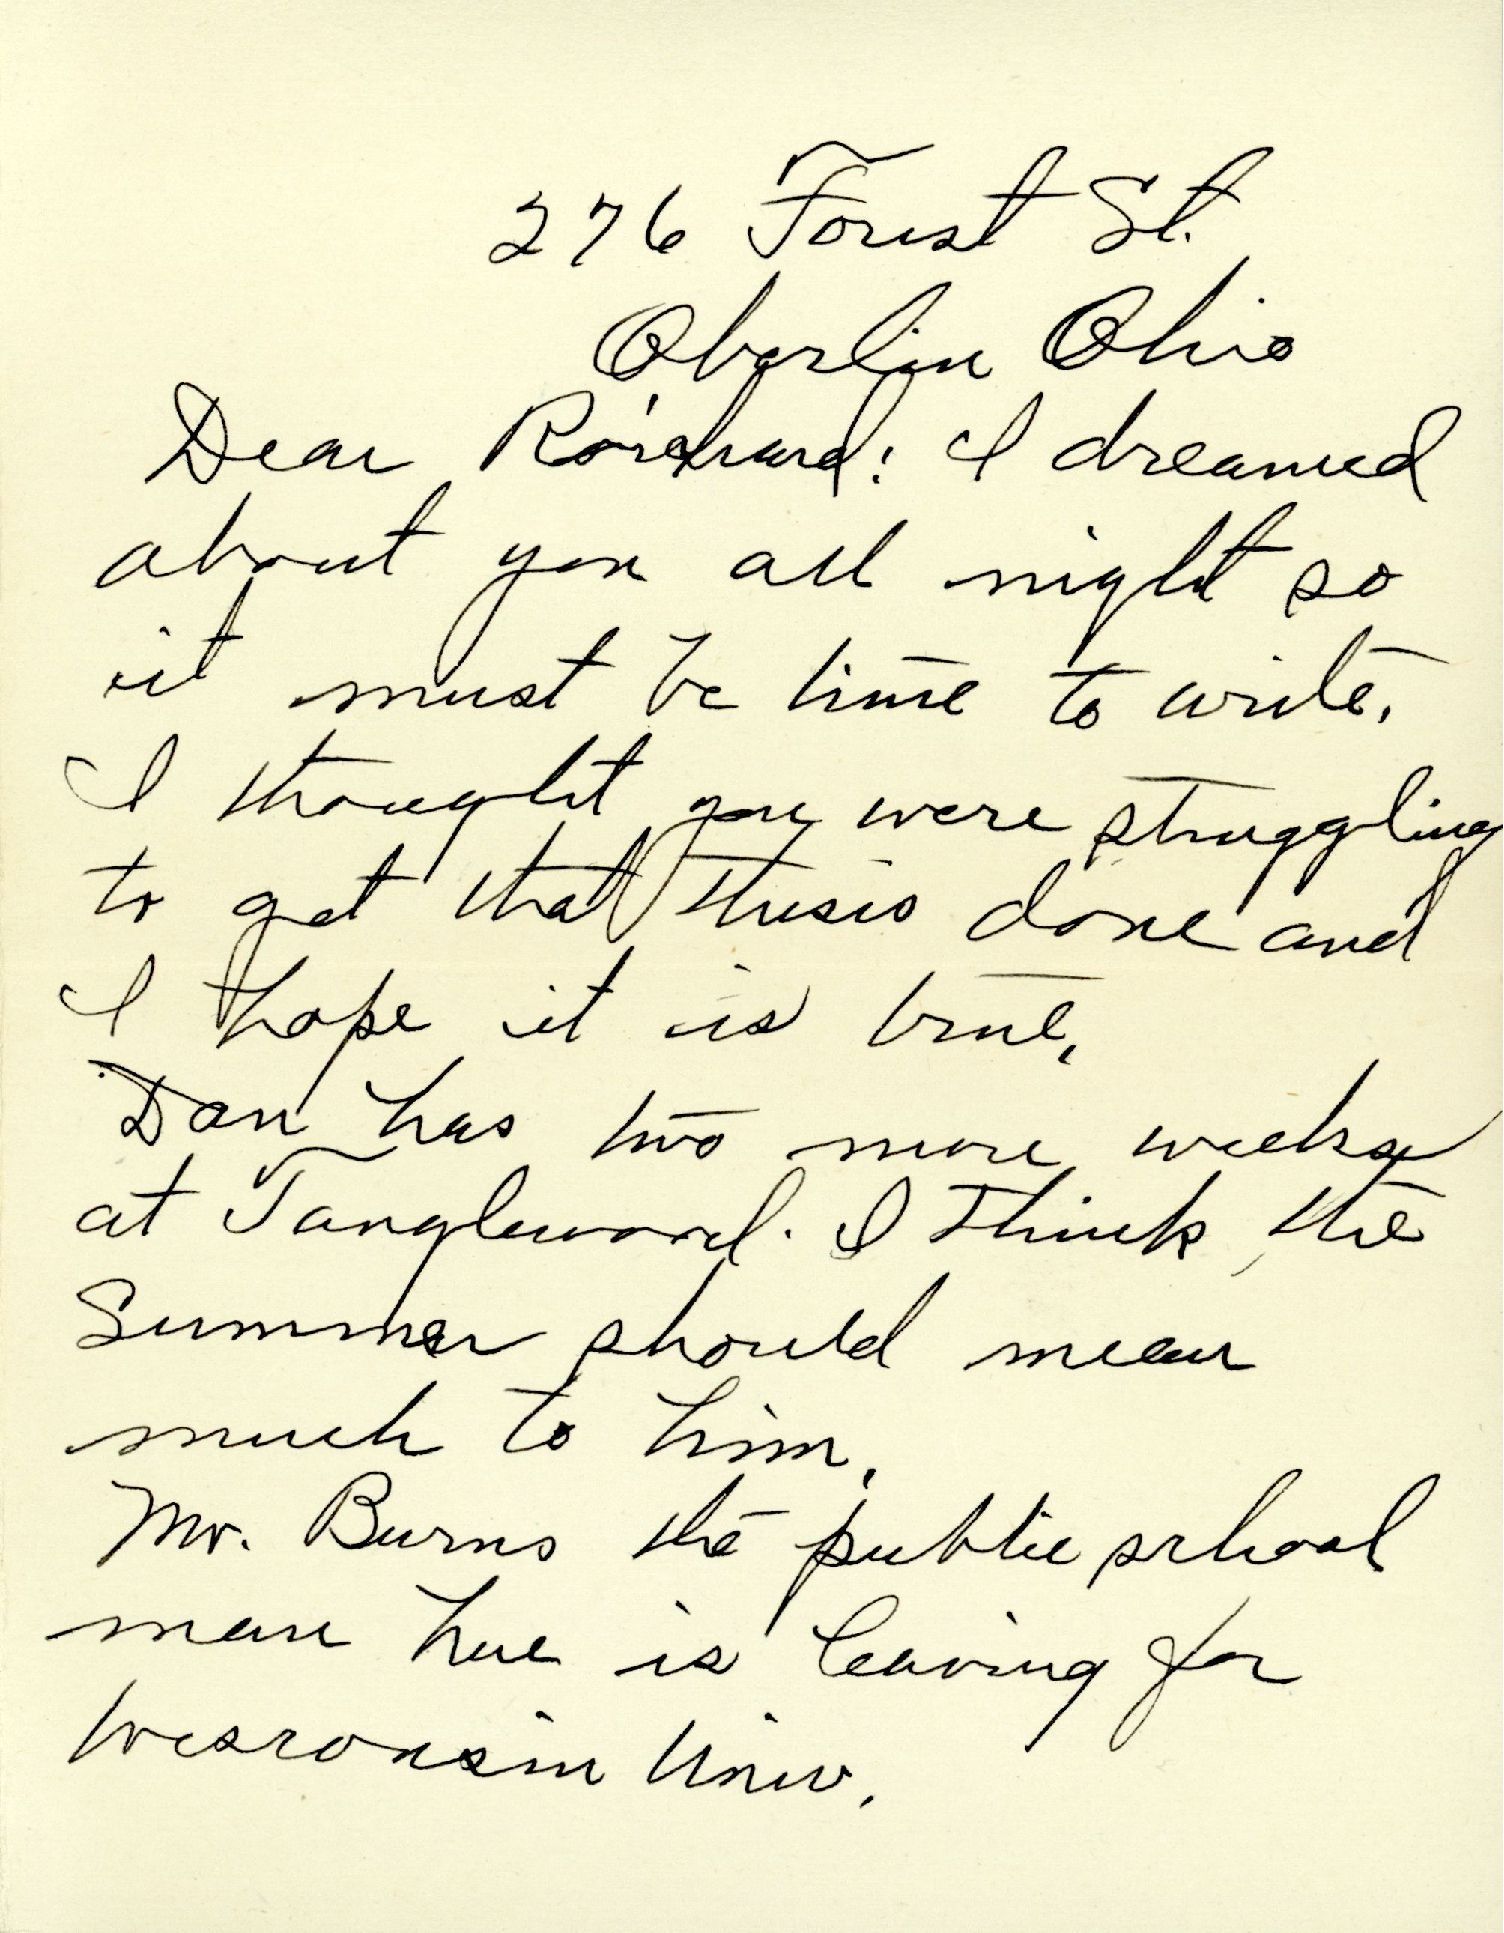 276 Forest St.
Oberlin Ohio
Dear Richard: I dreamed
about you all night so
it must be time to write.
I thought you were struggling
to get that thesis done and
I hope it is true.
Dan has two more weeks
at Tanglewood. I think the
Summer should mean
much to him.
Mr. Burns the public school
man here is leaving for
Wisconsin Univ.